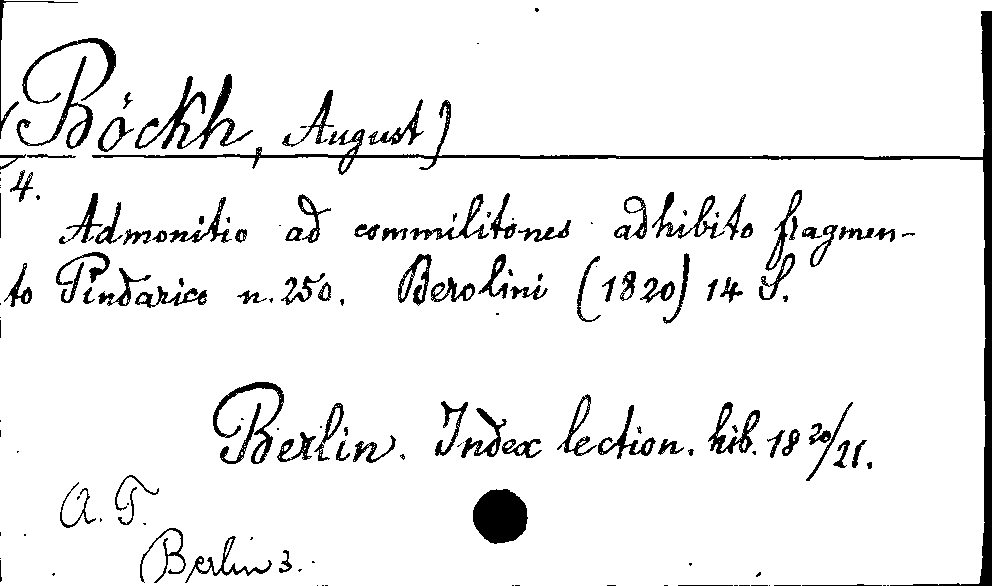 (Böckh, August)
4.
Admonitio ad commilitones adhibito fragmen-
to Pindarico n. 250. Berolini (1820) 14 S.
Berlin. Index lection. hib. 18 20/21.
A. T.
Berlin 3.